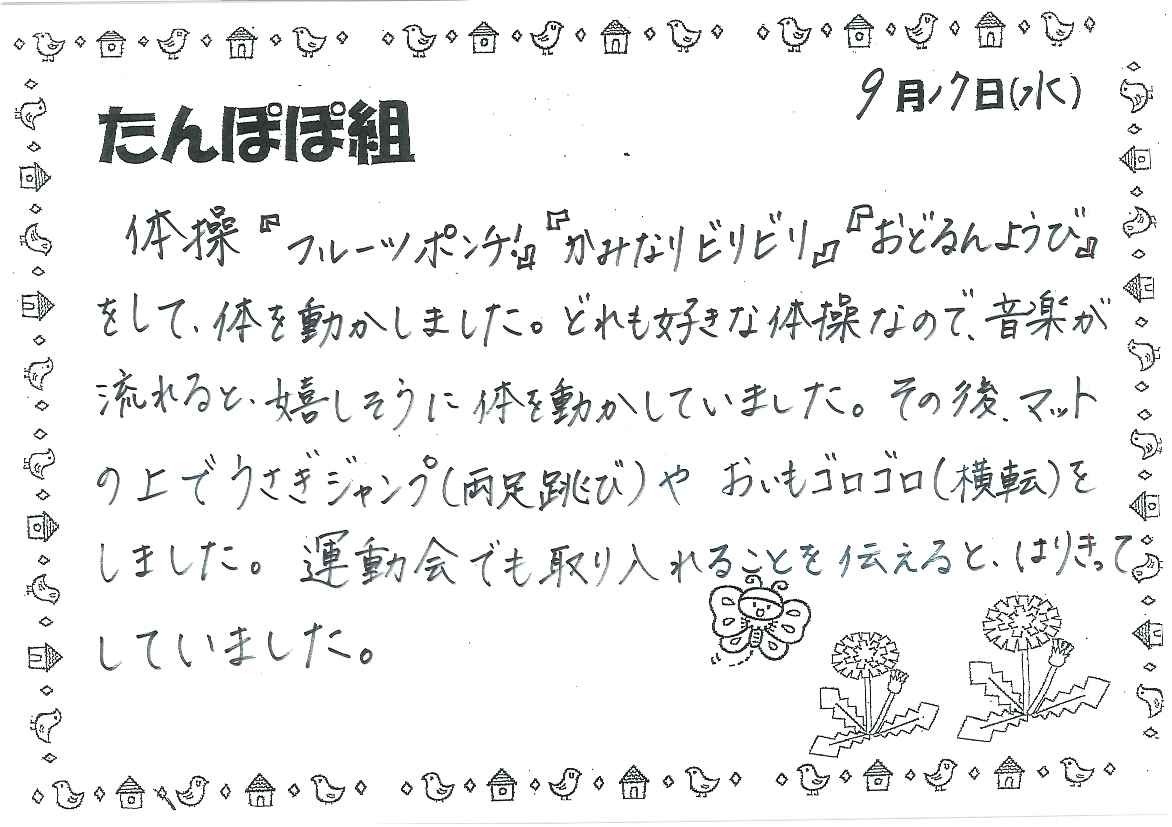 9月17日(水)
たんぽぽ組
体操『フルーツポンチ!』『かみなりビリビリ』『おどるんようび』
をして、体を動かしました。どれも好きな体操なので、音楽が
流れると、嬉しそうに体を動かしていました。その後、マット
の上でうさぎジャンプ(両足跳び)や おいもゴロゴロ(横転)を
しました。運動会でも取り入れることを伝えると、はりきって
していました。